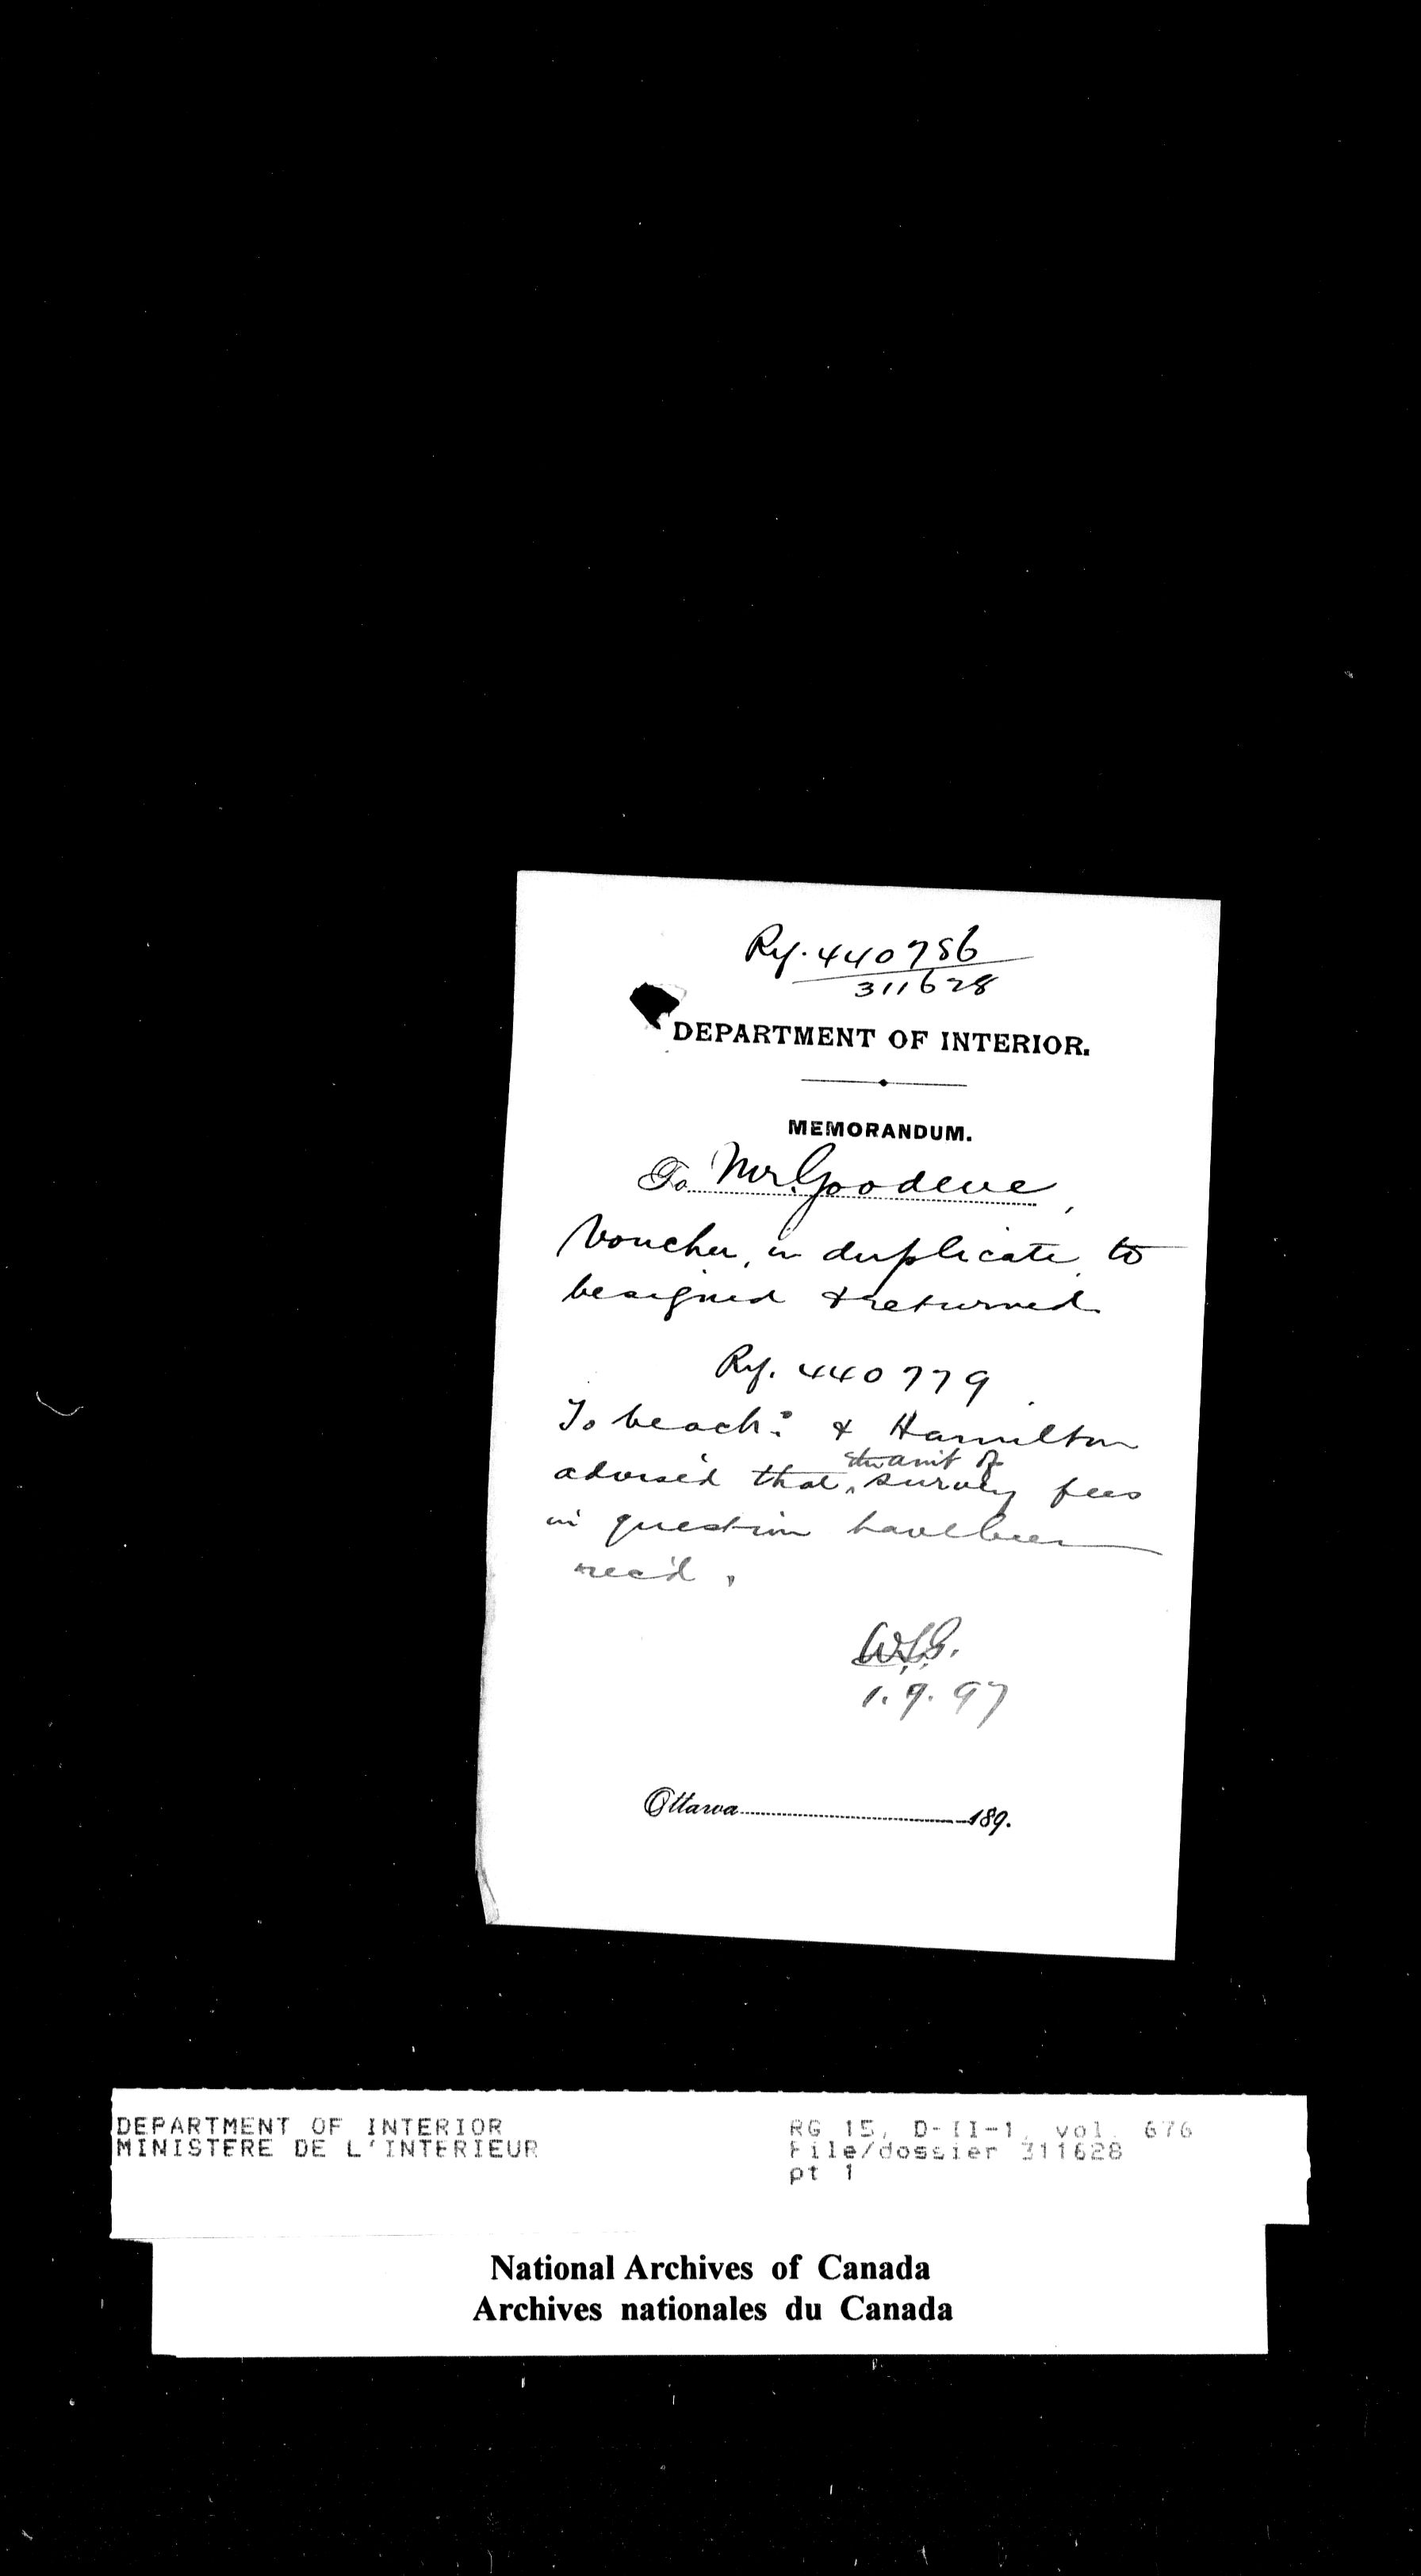 Ry. 440786
311628
DEPARTMENT OF INTERIOR.
MEMORANDUM.
To Mr. Goodeve,
Voucher, in duplicate, to
be signed & returned
Ry. 440779
To be ack: & Hamilton
advised that the amt of survey fees
in question have been
rec'd.
1.9.97
Ottawa 189.
DEPARTMENT OF INTERIOR
MINISTERE DE L'INTERIEUR
RG 15, D-II-1, vol. 676
File/dossier 311628
pt 1
National Archives of Canada
Archives nationales du Canada